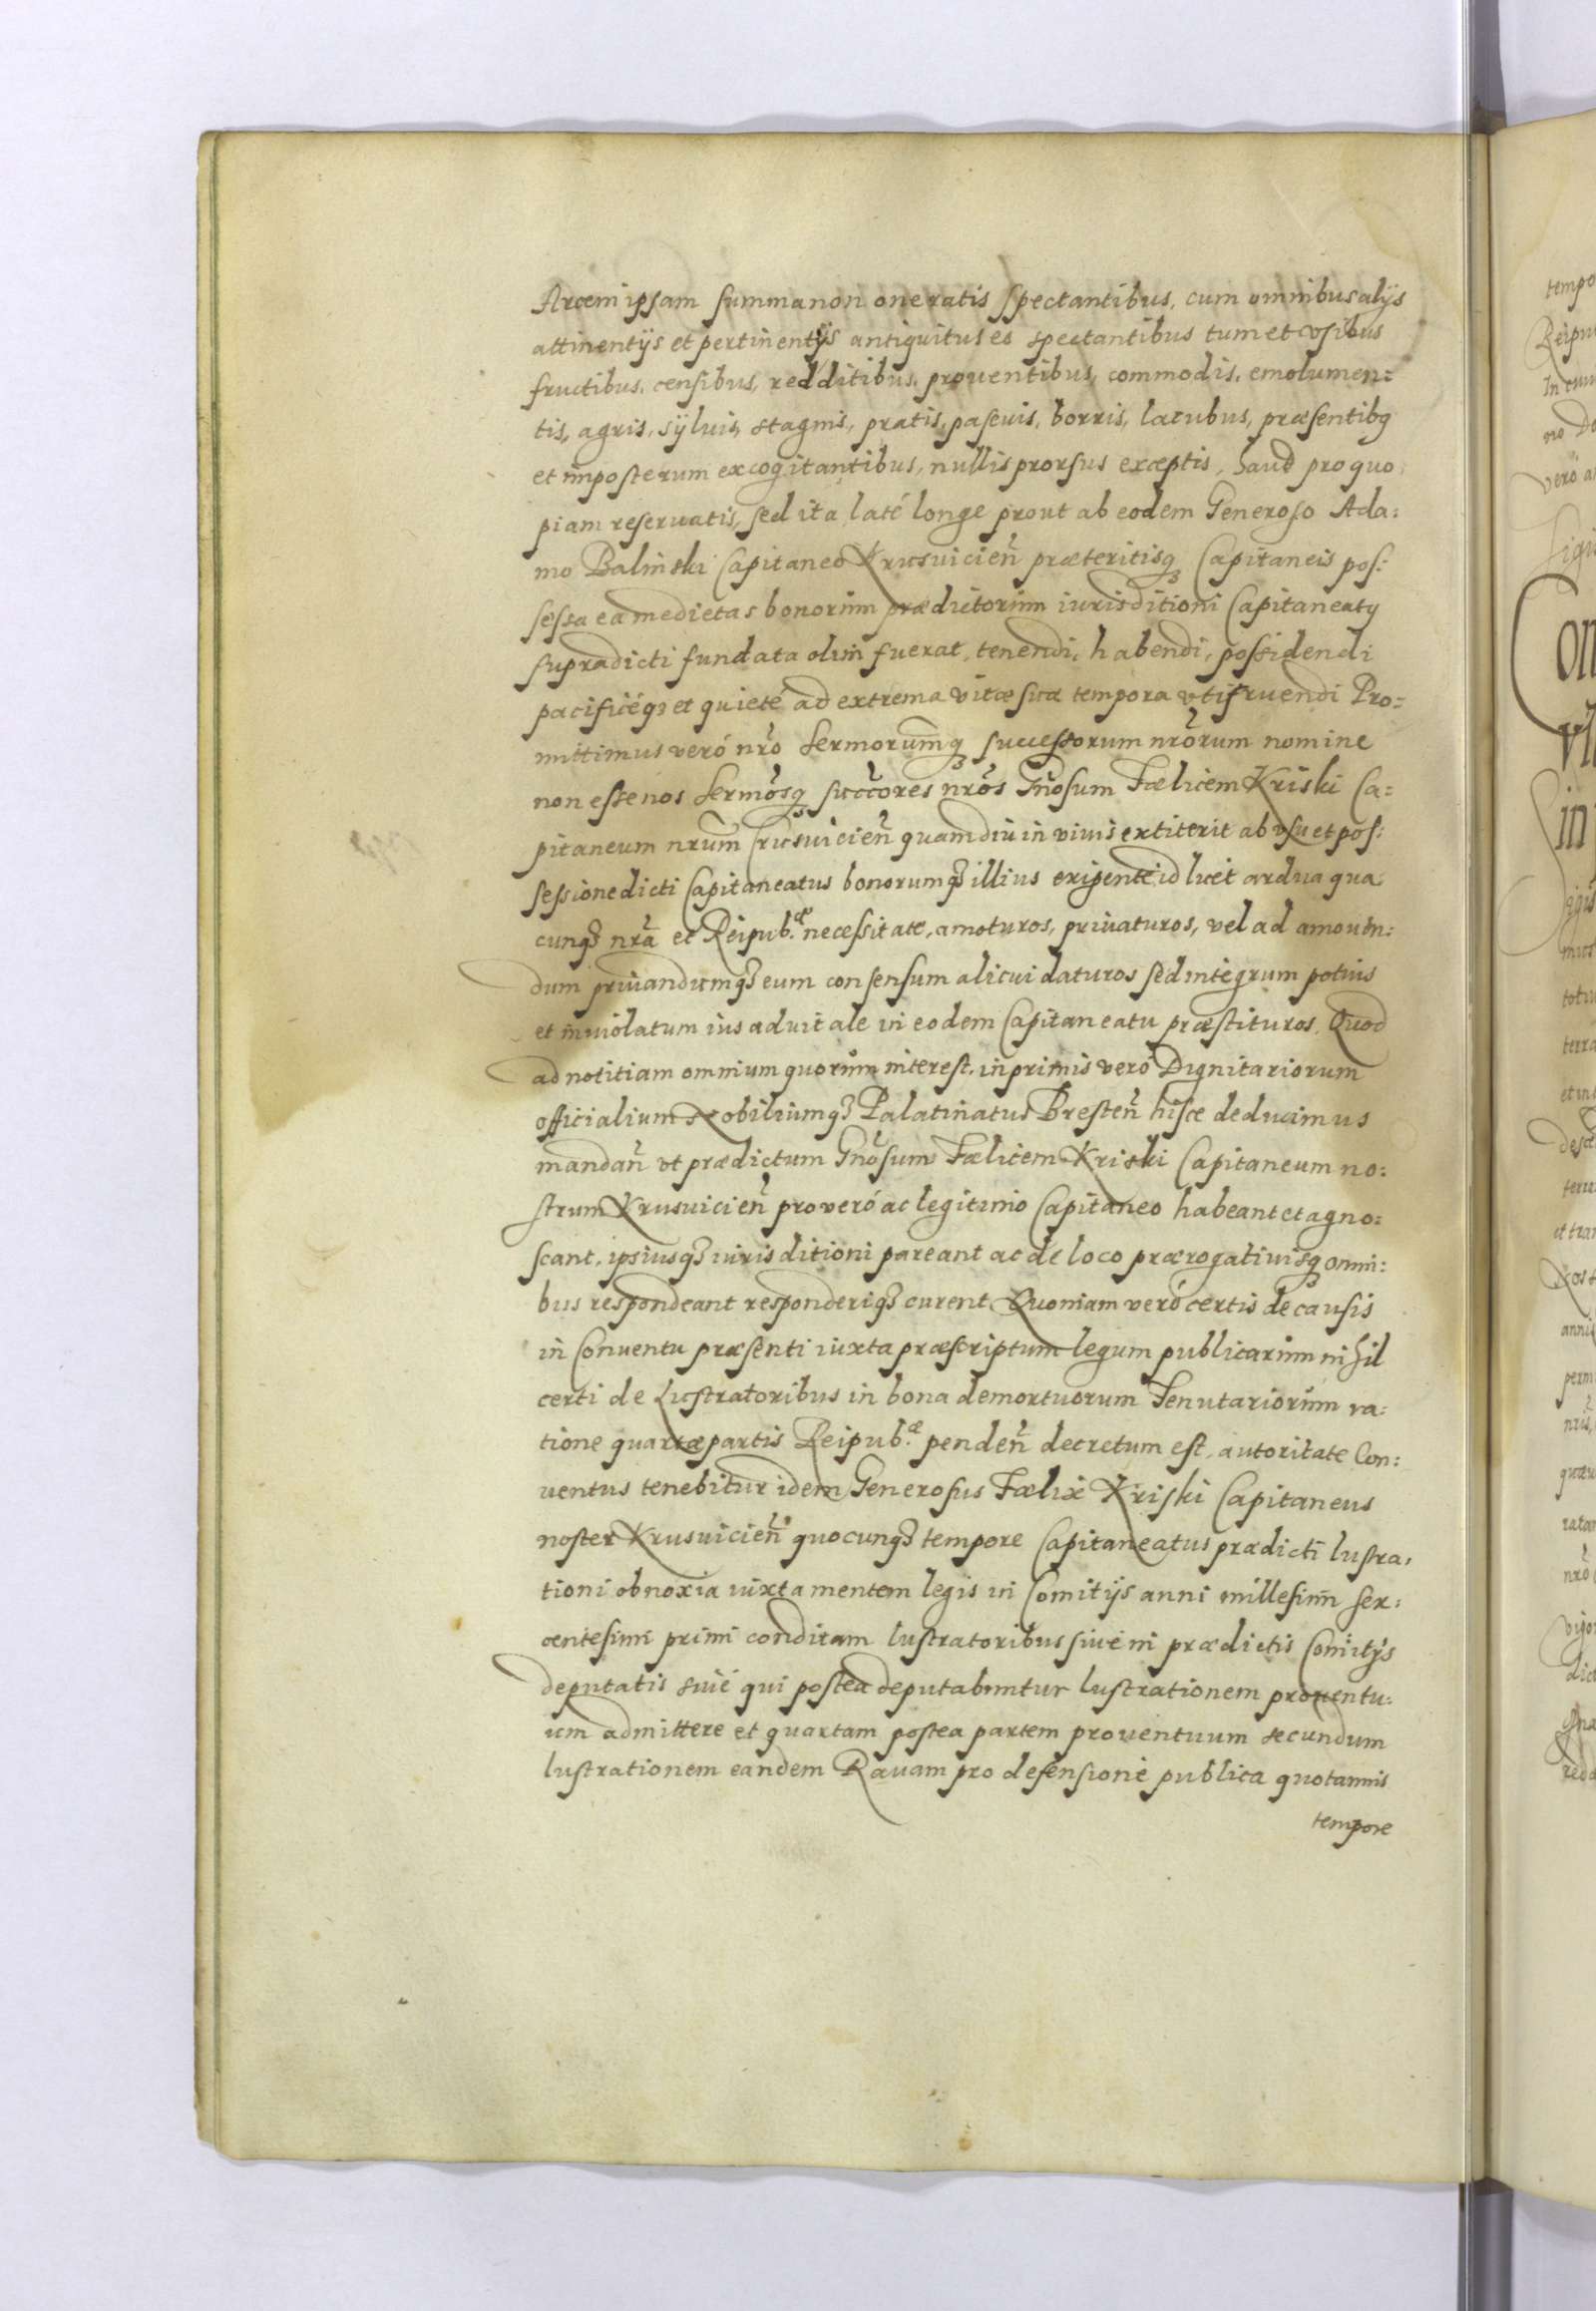 Arcem ipsam summa non oneratis spectantibus, cum omnibus alijs
attinentijs et pertinentijs antiquitus eo spectantibus tum et vsibus
fructibus, censibus, redditibus, prouentibus, commodis, emolumen:
tis, agris, syluis, stagnis, pratis, pascuis, borris, lacubus, præsentibq
et imposterum excogitantibus, nullis prorsus exceptis, haud pro quo
piam reseruatis, sed ita laté longe prout ab eodem Generoso Ada:
mo Balinski Capitaneo Krusvicieñ præteritisq Capitaneis pos:
sessa ea medietas bonorum prædictorum iurisditioni Capitaneaty
supradicti fundata olim fuerat, tenendi, habendi, possidendi
pacificéq3 et quieté ad extrema vitæ suæ tempora vtifruendi Pro:
mittimus veró nr̃o Sermorumq3 successorum nrõrum nomine
non esse nos Sermõsq3 succc̃ores nrõs Gnõsum Fœlicem Kriski Ca:
pitaneum nrũm Crusuicieñ quamdiu in viuis extiterit ab vsu et pos:
sessione dicti Capitaneatus bonorumq3 illius exigente id licet ardua qua
cunq3 nrã et Reipub.æ necessitate, amoturos, priuaturos, vel ad amouen:
dum priuandumq3 eum consensum alicui daturos sed integrum potius
et inuiolatum ius aduitale in eodem Capitaneatu præstituros. Quod
ad notitiam omnium quorum interest, inprimis vero Dignitariorum
officialium Nobiliumq3 Palatinatus Bresteñ hisce deducimus
mandañ vt prædictum Gnõsum Fœlicem Kriski Capitaneum no:
strum Krusuicieñ pro veró ac legitimo Capitaneo habeant et agno:
scant, ipsiusq3 iurisditioni pareant ac de loco prærogatiuisq3 omni:
bus respondeant responderiq3 curent. Quoniam veró certis de causis
in Conuentu præsenti iuxta præscriptum legum publicarum nihil
certi de Lustratoribus in bona demortuorum Tenutariorum ra:
tione quartæ partis Reipub.æ pendeñ decretum est, autoritate Con:
uentus tenebitur idem Generosus Fœlix Kriski Capitaneus
noster Krusuicieñ quocunq3 tempore Capitaneatus prædicti lustra,
tioni obnoxia iuxta mentem legis in Comitijs anni millesimi sex:
centesimi primi conditam lustratoribus siue in prædictis Comitijs
deputatis siué qui postea deputabuntur lustrationem prouentu:
um admittere et quartam postea partem prouentuum secundum
lustrationem eandem Rauam pro defensione publica quotannis
tempore